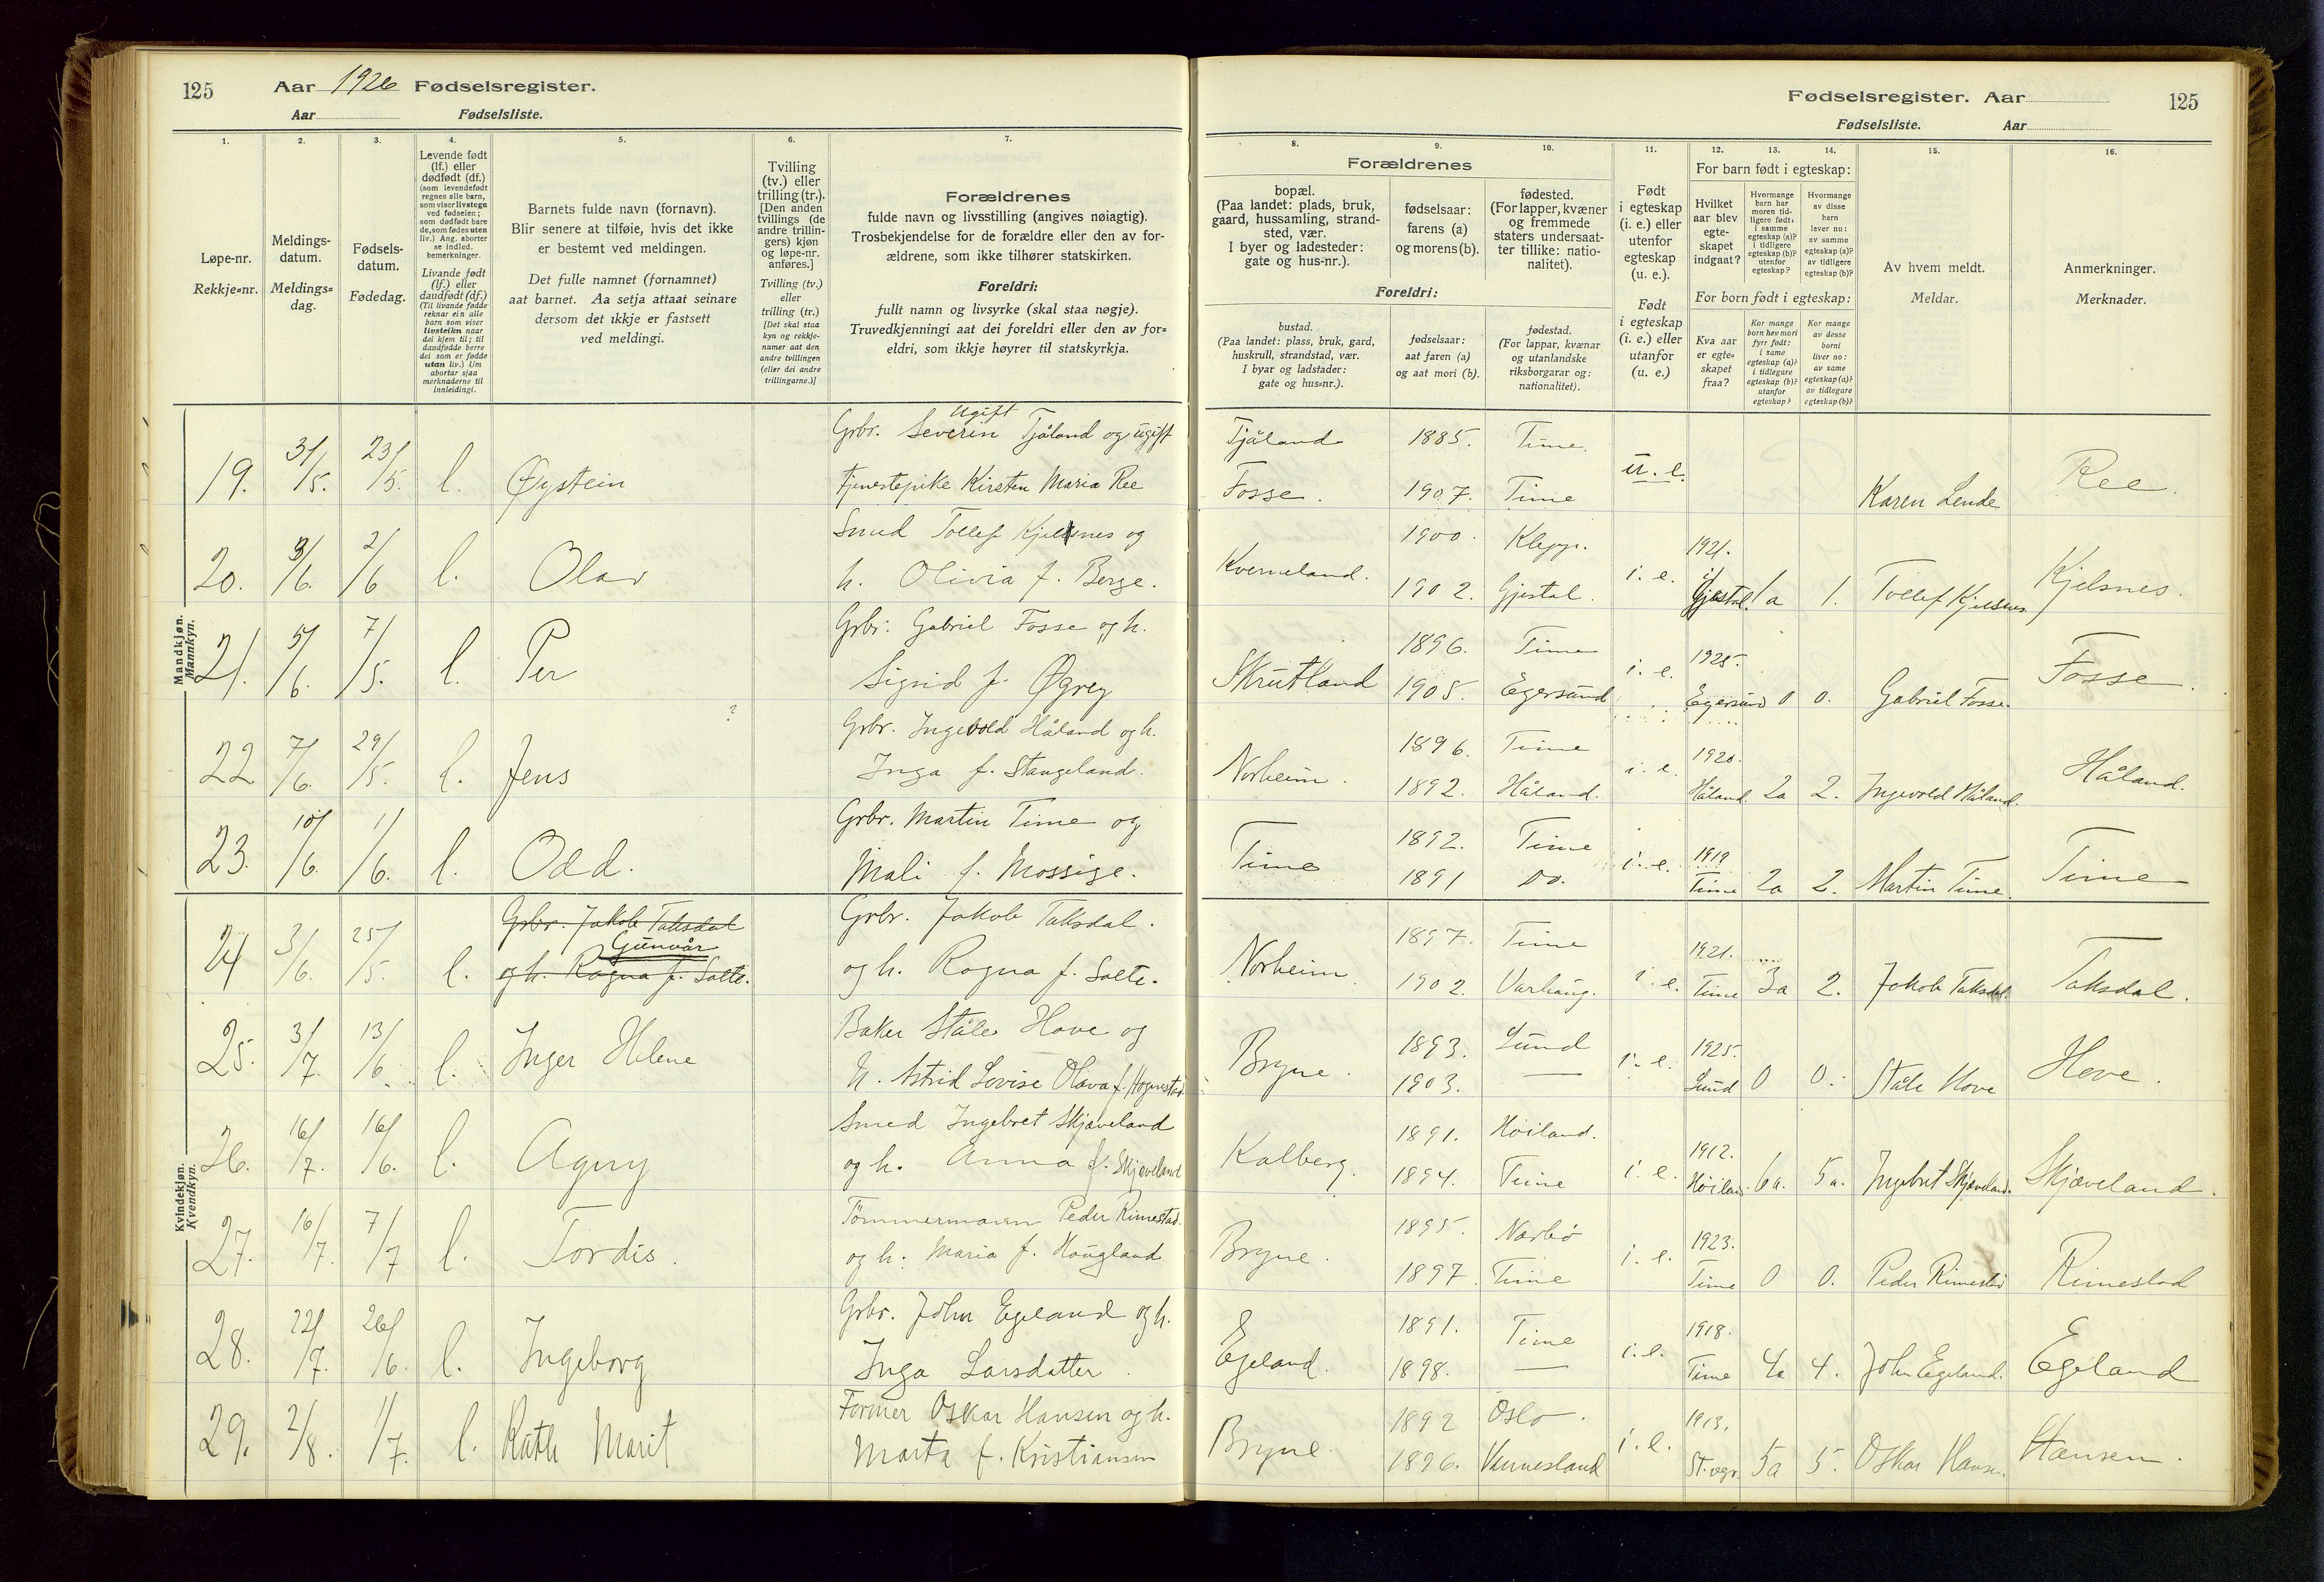 125 Aar 1926 Fødselsregister.
Aar Fødselsliste.
Fødselsregister. Aar 125
Fødselsliste. Aar
1. 2. 3. 4. 5. 6. 7. 8. 9. 10. 11. 12. 13. 14. 15. 16.
Løpe-nr.
Rekkje=nr.
Meldings-
datum.
Meldings=
dag.
Fødsels-
datum.
Fødedag.
Levende født
(lf.) eller
dødfødt (df.)
(som levendefødt
regnes alle barn,
som viser livstegn
ved fødselen;
som dødfødt bare
de, som fødes uten
liv.) Ang. aborter
se indled.
bemerkninger.
Livande født
(lf.) eller
daudfødt (df.)
(Til livande fødde
reknar ein alle
barn som viser
livsteikn naar
dei kjem til; til
daudfødde berre
dei som er fødde
utan liv.) Um
abortar sjaa
merknaderne til
innleidingi.
Barnets fulde navn (fornavn).
Blir senere at tilføie, hvis det ikke
er bestemt ved meldingen.
Det fulle namnet (fornamnet)
aat barnet. Aa setja attaat seinare
dersom det ikkje er fastsett
ved meldingi.
Tvilling
(tv.) eller
trilling (tr.).
[Den anden
tvillings (de
andre trillin-
gers) kjøn
og løpe-nr.
anføres.]
Tvilling (tv.)
eller
trilling (tr.)
[Det skal staa
kyn og rekkje-
numer aat den
andre tvillingen
(eller dei andre
trillingarne.)]
Forældrenes
fulde navn og livsstilling (angives nøiagtig).
Trosbekjendelse for de forældre eller den av for-
ældrene, som ikke tilhører statskirken.
Foreldri:
fullt namn og livsyrke (skal staa nøgje).
Truvedkjenningi aat dei foreldri eller den av for=
eldri, som ikkje høyrer til statskyrkja.
Forældrenes
bopæl.
(Paa landet: plads, bruk,
gaard, hussamling, strand-
sted, vær.
I byer og ladesteder:
gate og hus-nr.).
fødselsaar:
farens (a)
og morens (b).
fødested.
(For lapper, kvæner
og fremmede
staters undersaat-
ter tillike: natio-
nalitet).
Foreldri:
bustad.
(Paa landet: plass, bruk, gard,
huskrull, strandstad, vær.
I byar og ladstader:
gate og hus=nr.).
fødselsaar:
aat faren (a)
og aat mori (b).
fødestad.
(For lappar, kvænar
og utanlandske
riksborgarar og:
nationalitet).
Født
i egteskap
(i. e.) eller
utenfor
egteskap
(u. e.).
Født
i egteskap
(i. e.) eller
utanfor
(u. e.)
For barn født i egteskap:
Hvilket
aar blev
egte-
skapet
indgaat?
Hvormange
barn har
moren tid-
ligere født:
i samme
egteskap (a)?
i tidligere
egteskap (b)?
utenfor
egteskap?
Hvormange
av disse
barn
lever nu:
av samme
egteskap (a)?
av tidligere
egteskap (b)?
For born født i egteskap:
Kva aar
er egte=
skapet
fraa?
Kor mange
born hev mori
fyrr født:
i same
egteskap (a)?
i tidlegare
egteskap (b)?
utanfor
egteskap?
Kor mange
av desse
borni
liver no:
av same
egteskap (a)?
av tidlegare
egteskap (b)?
Av hvem meldt.
Meldar.
Anmerkninger.
Merknader.
Mandkjøn.
Mannkyn.
19. 31/5. 23/5. l. Øystein
Grbr. Severin Tjåland og ugift
ugift
tjenestepike Kirsten Maria Ree
Tjåland 1885. Time.
Fosse. 1907. Time u. e. Karen Lende Ree.
20. 3/6. 2/6 l. Olav
Smed Tollef Kjelsnes og
h. Olivia f. Berge.
Kverneland. 1900. Klepp.
1902. Gjestal. i. e. 1921. Gjestal. 1a 1. Tollef Kjelsnes Kjelsnes.
21. 5/6. 7/5. l. Per
Grbr. Gabriel Fosse og h.
Sigrid f. Øgrey
Skrutland 1896. Time
1905. Egersund i. e. 1925. Egersund 0 0. Gabriel Fosse. Fosse.
22 7/6. 29/5. l. Jens ?
Grbr. Ingevold Håland og h.
Inga f. Stangeland.
Norheim. 1896. Time
1892. Håland. i. e. 1920. Håland. 2a 2. Ingevold Håland. Håland.
23. 10/6. 1/6. l. Odd.
Grbr. Martin Time og
Mali f. Mossige.
Time 1892. Time
1891 Do. i. e. 1919 Time 2a 2. Martin Time Time
Kvindekjøn.
Kvendkyn.
24 3/6. 25/5. l. Grbr. Jakob Taksdal
Gunvår
og h. Ragna f. Salte.
Grbr. Jakob Taksdal.
og h. Ragna f. Salte.
Norheim. 1897. Time
1902. Varhaug. i. e. 1921. Time 3a 2. Jakob Taksdal. Taksdal.
25. 3/7. 13/6. l. Inger Helene
Baker Ståle Hove og
h. Astrid Lovise Olava f. Hognestad.
Bryne. 1893. Lund
1903. — i. e. 1925. Lund 0 0. Ståle Hove Hove.
26. 16/7. 16/6. l. Agny
Smed Ingebret Skjæveland
og h. Anna f. Skjæveland
Kalberg. 1891. Høiland.
1894. Time i. e. 1912. Høiland. 6a. 5a. Ingebret Skjæveland. Skjæveland.
27. 16/7. 7/7 l. Tordis.
Tømmermann Peder Rimestad.
og h. Maria f. Haugland
Bryne. 1895. Nærbø
1897. Time i. e. 1923. Time 0 0. Peder Rimestad Rimestad
28. 22/7. 26/6. l. Ingeborg
Grbr. John Egeland og h.
Inga Larsdatter.
Egeland. 1891. Time
1898. — i. e. 1918. Time 4a 4. John Egeland. Egeland
29. 2/8. 1/7. l. Ruth Marit
Former Oskar Hansen og h.
Marta f. Kristiansen
Bryne. 1892 Oslo.
1896. Vennesland i. e. 1913. 5a 5. Oskar Hansen. Hansen.